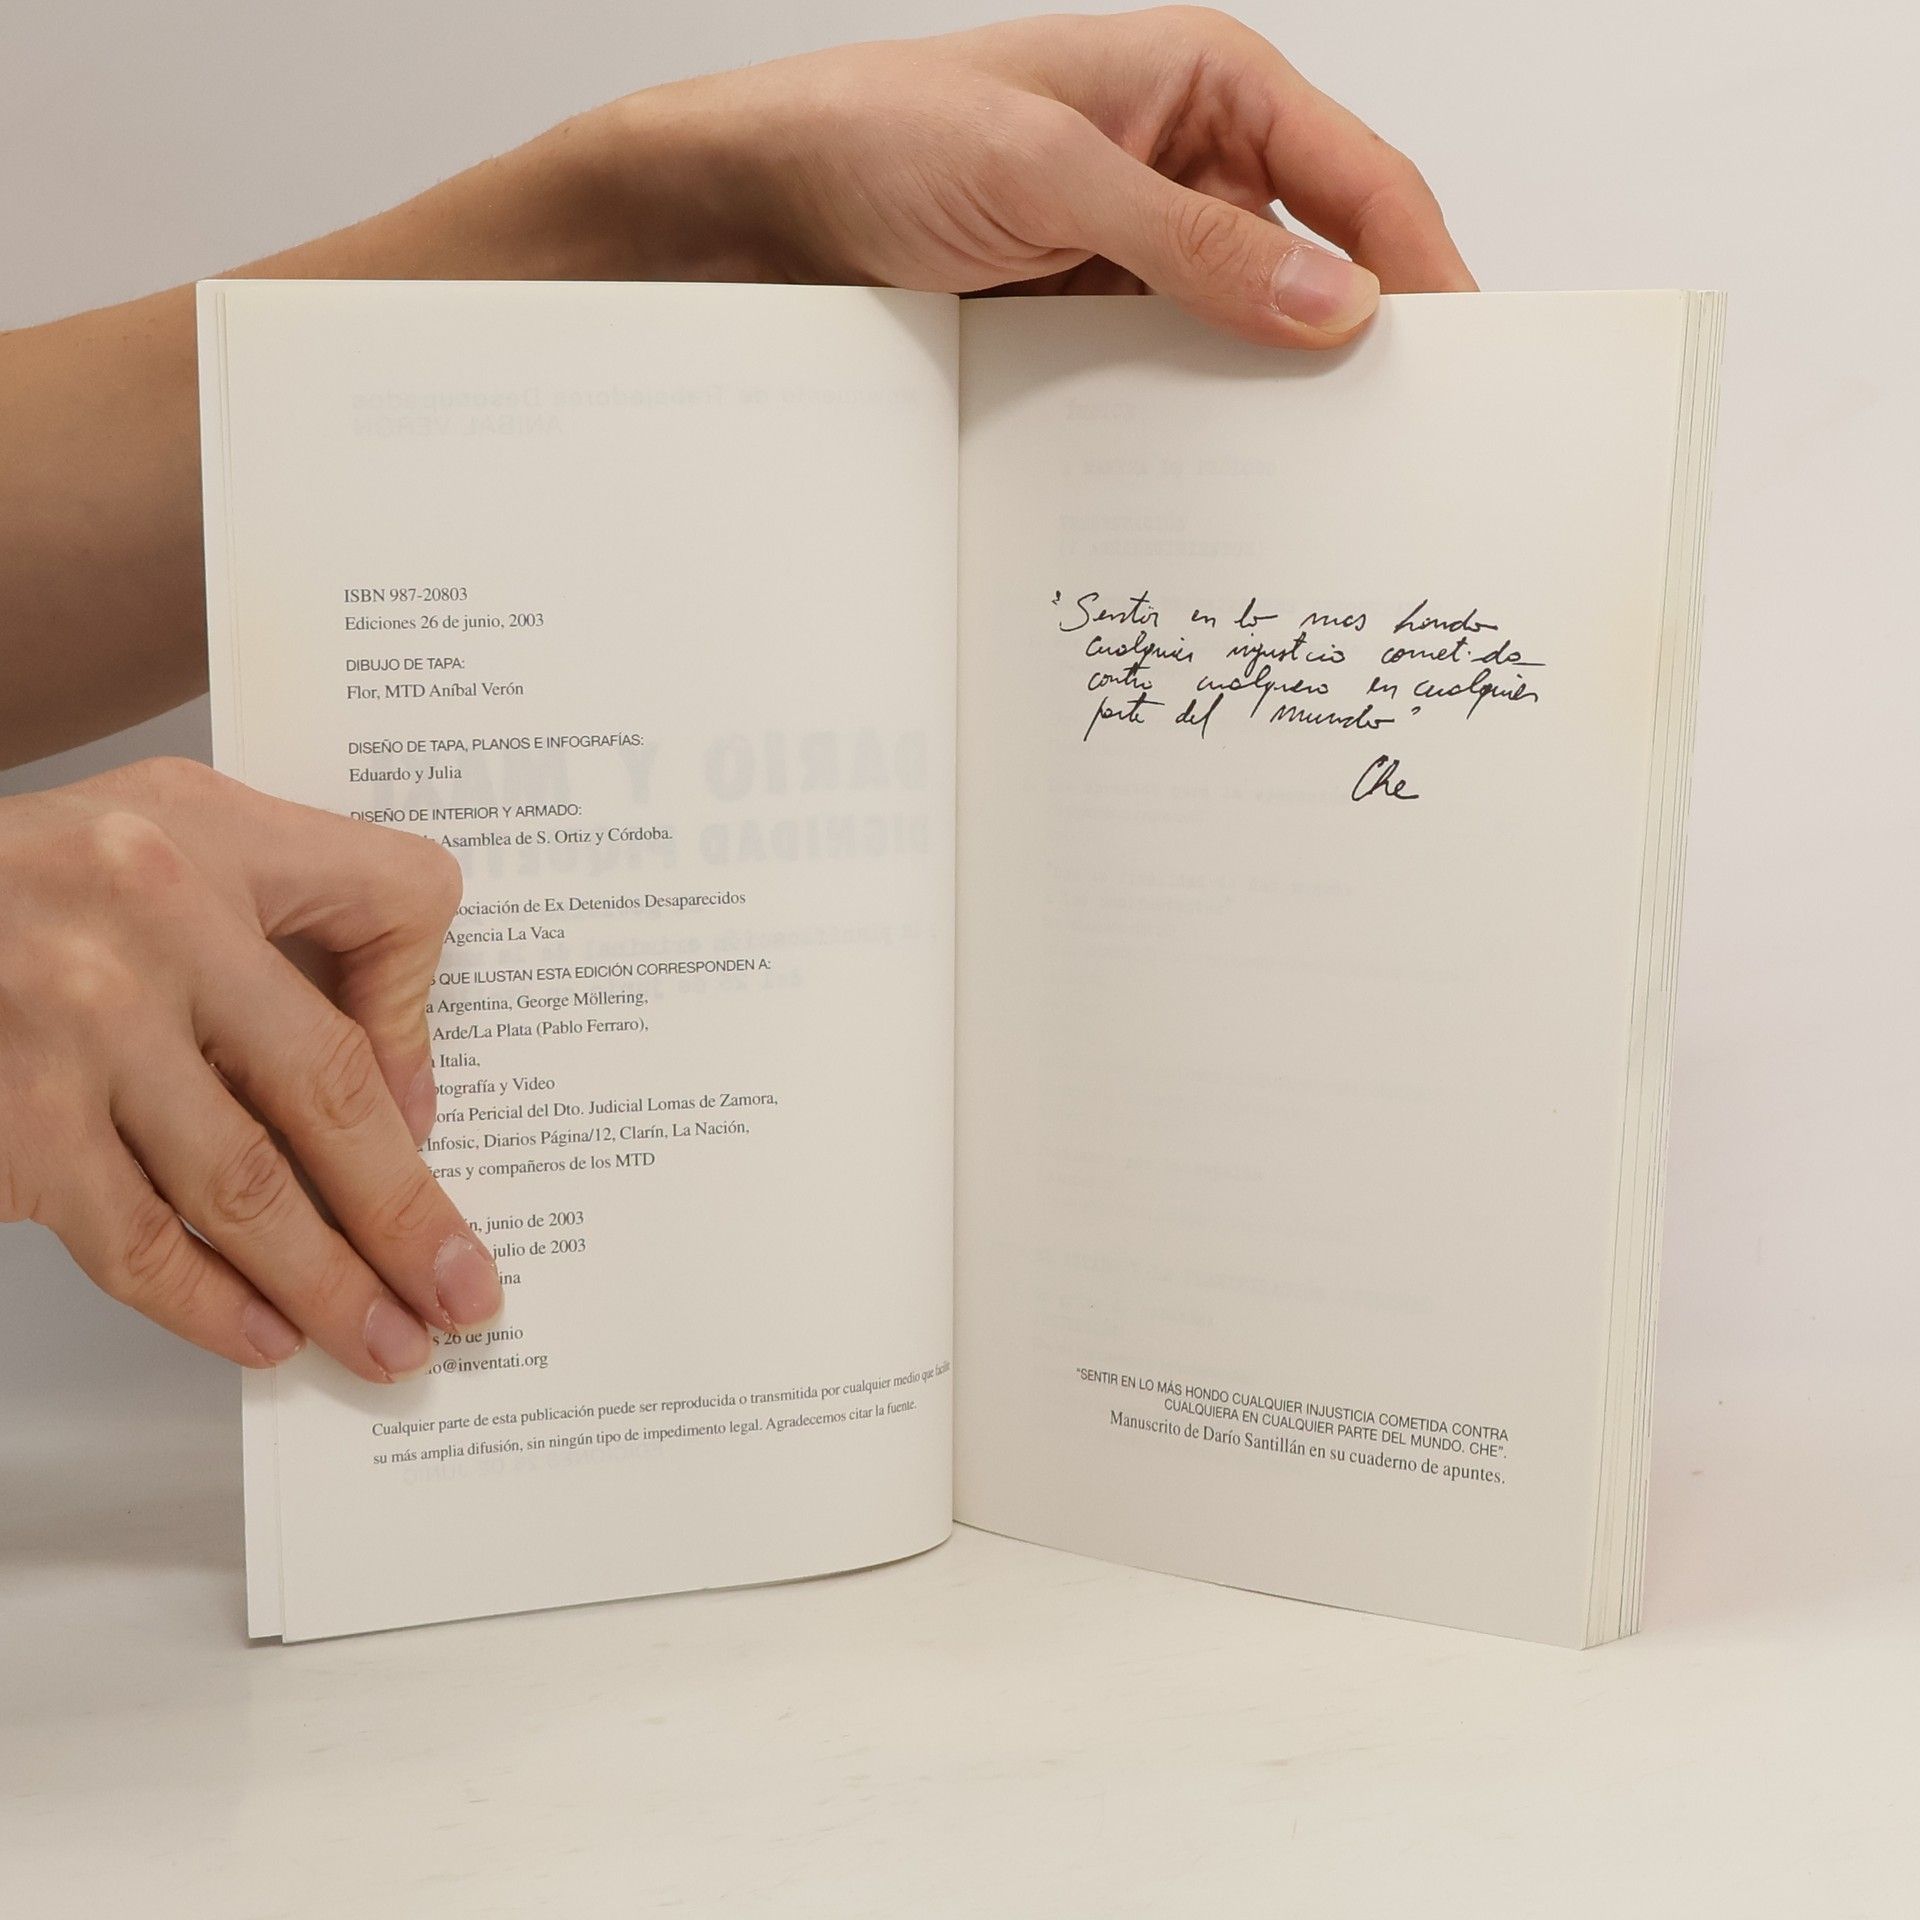 ISBN 987-20803
Ediciones 26 de junio, 2003
DIBUJO DE TAPA:
Flor, MTD Aníbal Verón
DISEÑO DE TAPA, PLANOS E INFOGRAFÍAS:
Eduardo y Julia
DISEÑO DE INTERIOR Y ARMADO:
Asamblea de S. Ortiz y Córdoba.
de Ex Detenidos Desaparecidos
Agencia La Vaca
QUE ILUSTAN ESTA EDICIÓN CORRESPONDEN A:
Argentina, George Möllering,
Arde/La Plata (Pablo Ferraro),
Italia,
y Video
Pericial del Dto. Judicial Lomas de Zamora,
Infosic, Diarios Página/12, Clarín, La Nación,
y compañeros de los MTD
junio de 2003
julio de 2003
26 de junio
@inventati.org
Cualquier parte de esta publicación puede ser reproducida o transmitida por cualquier medio que facilite
su más amplia difusión, sin ningún tipo de impedimento legal. Agradecemos citar la fuente.
"Sentir en lo mas hondo
cualquier injusticia cometida
contra cualquiera en cualquier
parte del mundo"
Che
"SENTIR EN LO MÁS HONDO CUALQUIER INJUSTICIA COMETIDA CONTRA
CUALQUIERA EN CUALQUIER PARTE DEL MUNDO. CHE".
Manuscrito de Darío Santillán en su cuaderno de apuntes.